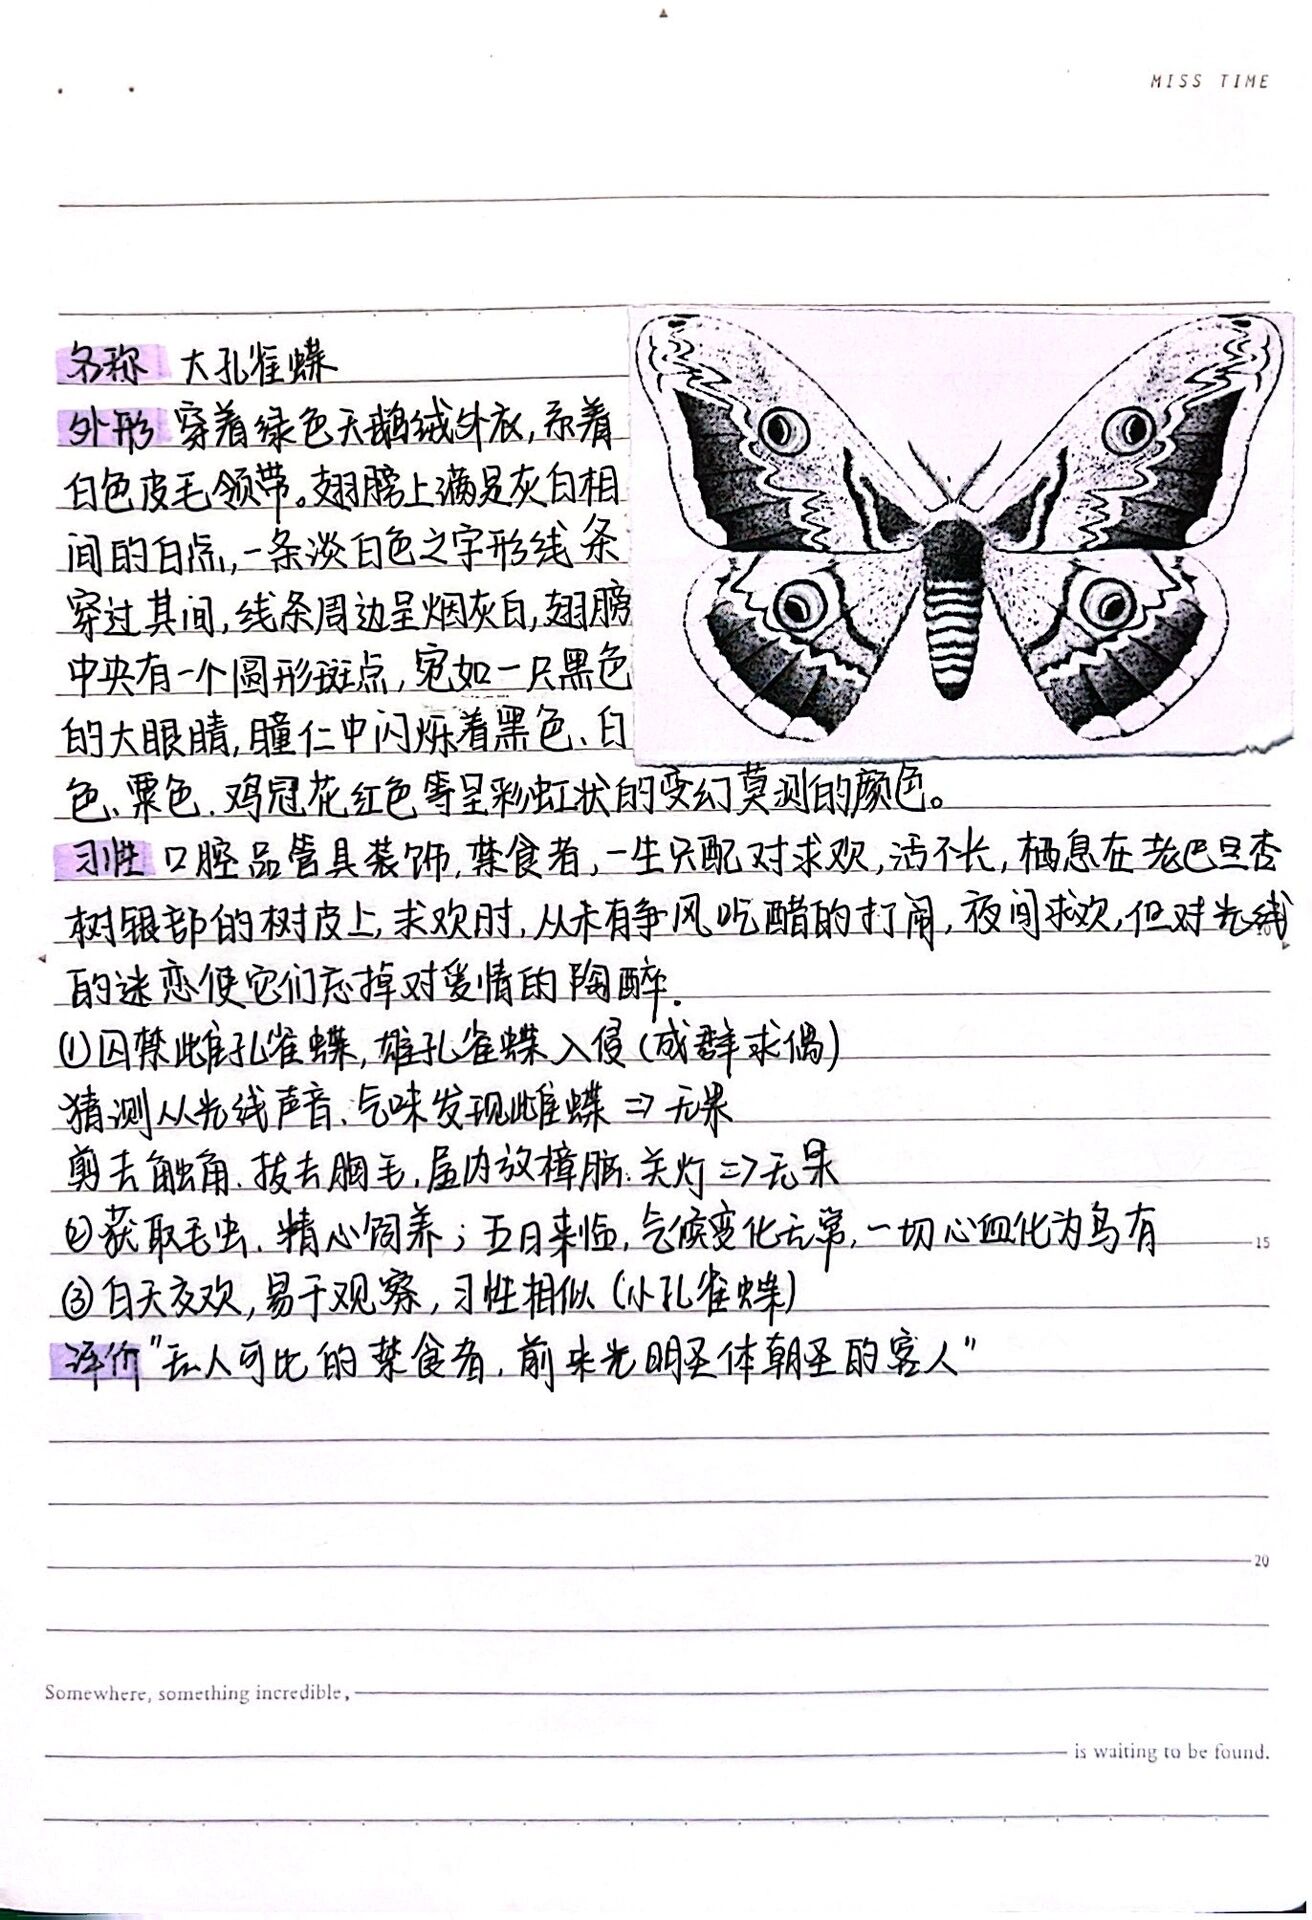 MISS TIME
名称 大孔雀蝶
外形 穿着绿色天鹅绒外衣,系着
白色皮毛领带。翅膀上满是灰白相
间的白点,一条淡白色之字形线条
穿过其间,线条周边呈烟灰白,翅膀
中央有一个圆形斑点,宛如一只黑色
的大眼睛,瞳仁中闪烁着黑色、白
色、栗色、鸡冠花红色等呈彩虹状的变幻莫测的颜色。
习性 口腔品管具装饰,禁食者,一生只配对求欢,活不长,栖息在老巴旦杏
树银部的树皮上,求欢时,从未有争风吃醋的打闹,夜间求欢,但对光线
的迷恋使它们忘掉对爱情的陶醉.
①囚禁雌孔雀蝶,雄孔雀蝶入侵(成群求偶)
猜测从光线声音、气味发现雌蝶⇒无果
剪去触角、拔去胸毛,屋内放樟脑、关灯⇒无果
②获取毛虫、精心饲养;五日来临,气候变化无常,一切心血化为乌有
15
③白天交欢,易于观察,习性相似(小孔雀蝶)
评价"无人可比的禁食者,前来光明圣体朝圣的客人"
20
Somewhere, something incredible,
is waiting to be found.